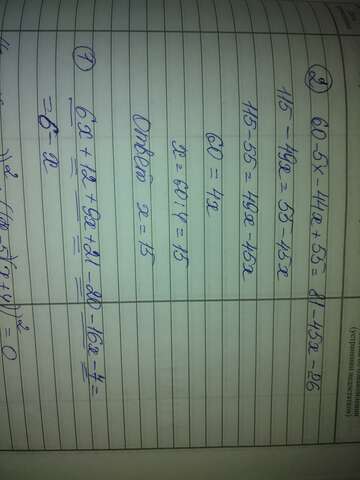 ② 60-5x-44x+55=81-45x-26
115-49x=55-45x
115-55=49x-45x
60=4x
x=60:4=15
Ответ x=15
① 6x+12+9x+21-20-16x-7=
=6-x
(x+4))²=0